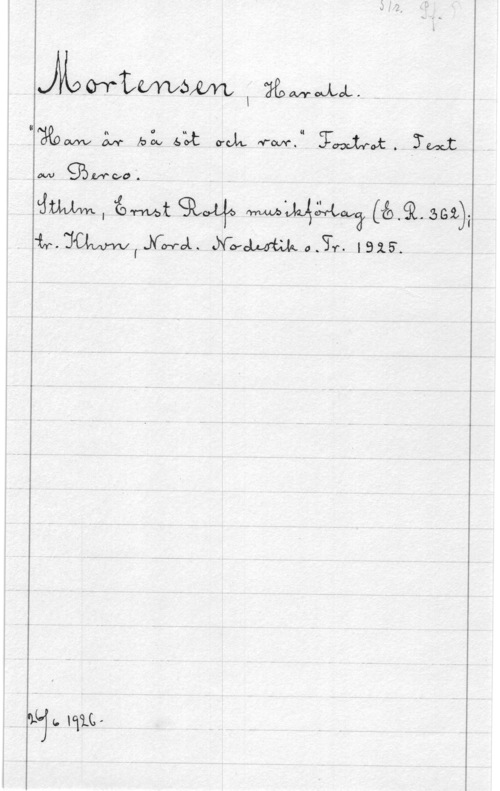 Mortensen, Harald.
"Han är så söt och rar." Foxtrot. Text
av Berco.
Sthlm, Ernst Rolfs musikförlag (E.R. 362);
tr. Khvn, Nord. Nodestik o. Tr. 1925.
26/6 1926.